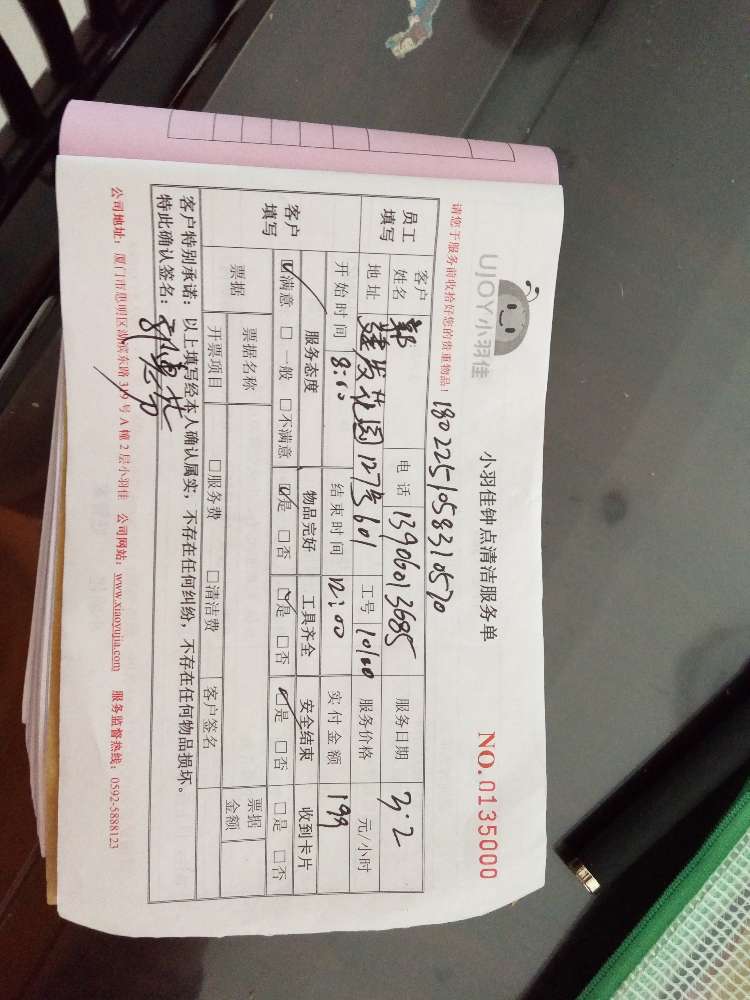 UJOY小羽佳
小羽佳钟点清洁服务单
NO.0135000
请您于服务前收拾好您的贵重物品！
1802251058310570
员工填写
客户姓名 郭 电话 13906013685 服务日期 3.2
地址 建发花园127号601 工号 10100 服务价格 元/小时
开始时间 8:00 结束时间 12:00 实付金额 199
客户填写
服务态度 物品完好 工具齐全 安全结束 收到卡片
☑满意 □一般 □不满意 ☑是 □否 ☑是 □否 ☑是 □否 □是 □否
票据 票据名称 票据金额
开票项目 □服务费 □清洁费 客户签名
客户特别承诺：以上填写经本人确认属实，不存在任何纠纷，不存在任何物品损坏。
特此确认签名：
公司地址：厦门市思明区湖滨东路319号A幢2层小羽佳 公司网站：www.xiaoyujia.com 服务监督热线：0592-5888123